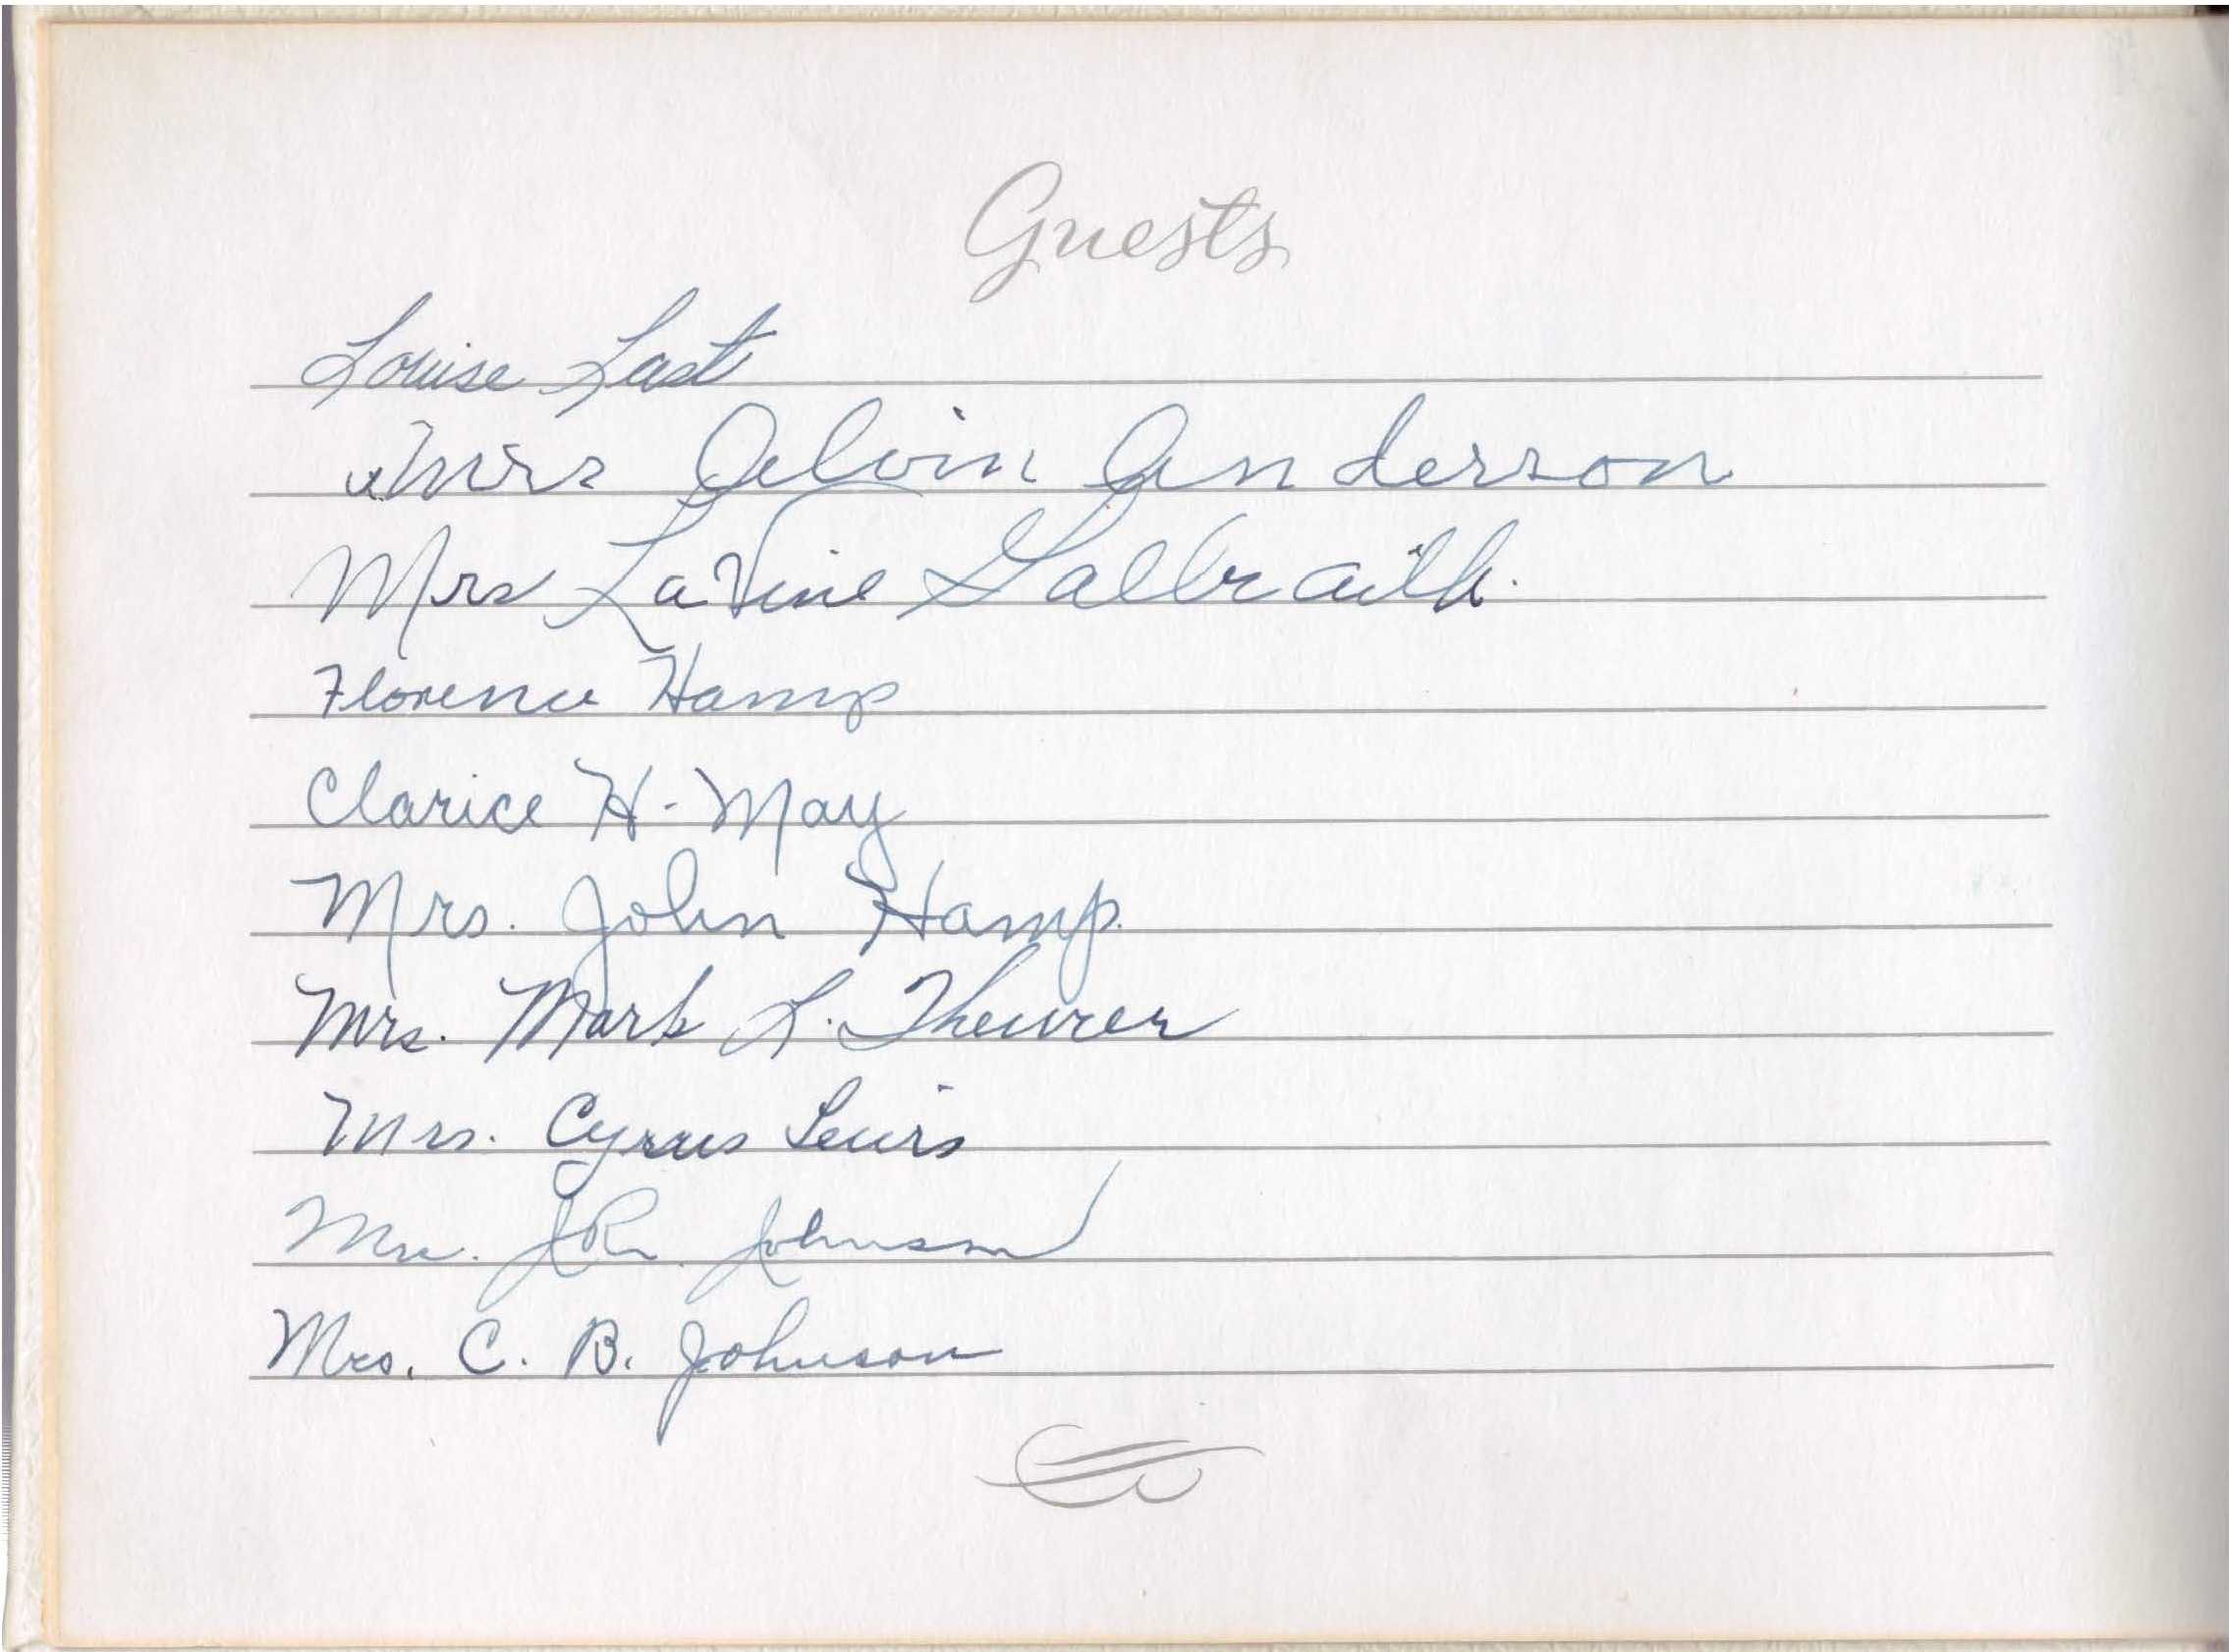 Guests
Louise Last
Mrs Alvin Anderson
Mrs LaVine Galbraith.
Florence Hamp
Clarice H. May
Mrs. John Hamp.
Mrs. Mark L. Theurer
Mrs. Cyrus Lewis
Mrs. J R. Johnson
Mrs. C. B. Johnson